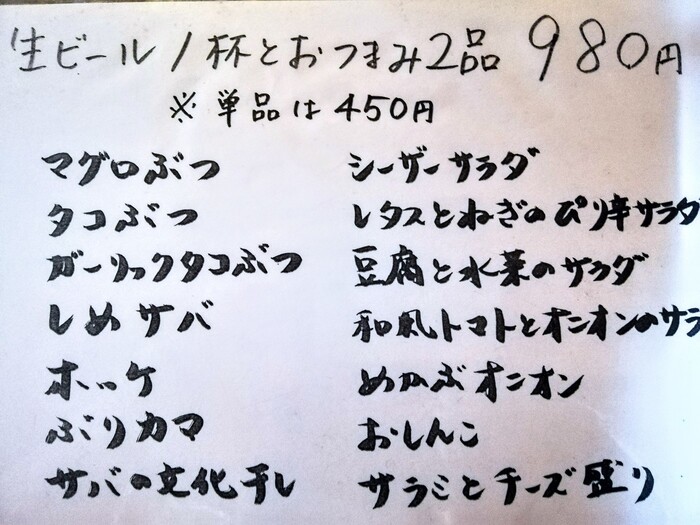 生ビール1杯とおつまみ2品 980円
※単品は450円
マグロぶつ
タコぶつ
ガーリックタコぶつ
しめサバ
ホッケ
ぶりカマ
サバの文化干し
シーザーサラダ
レタスとねぎのぴり辛サラダ
豆腐と水菜のサラダ
和風トマトとオニオンのサラ
めかぶオニオン
おしんこ
サラミとチーズ盛り